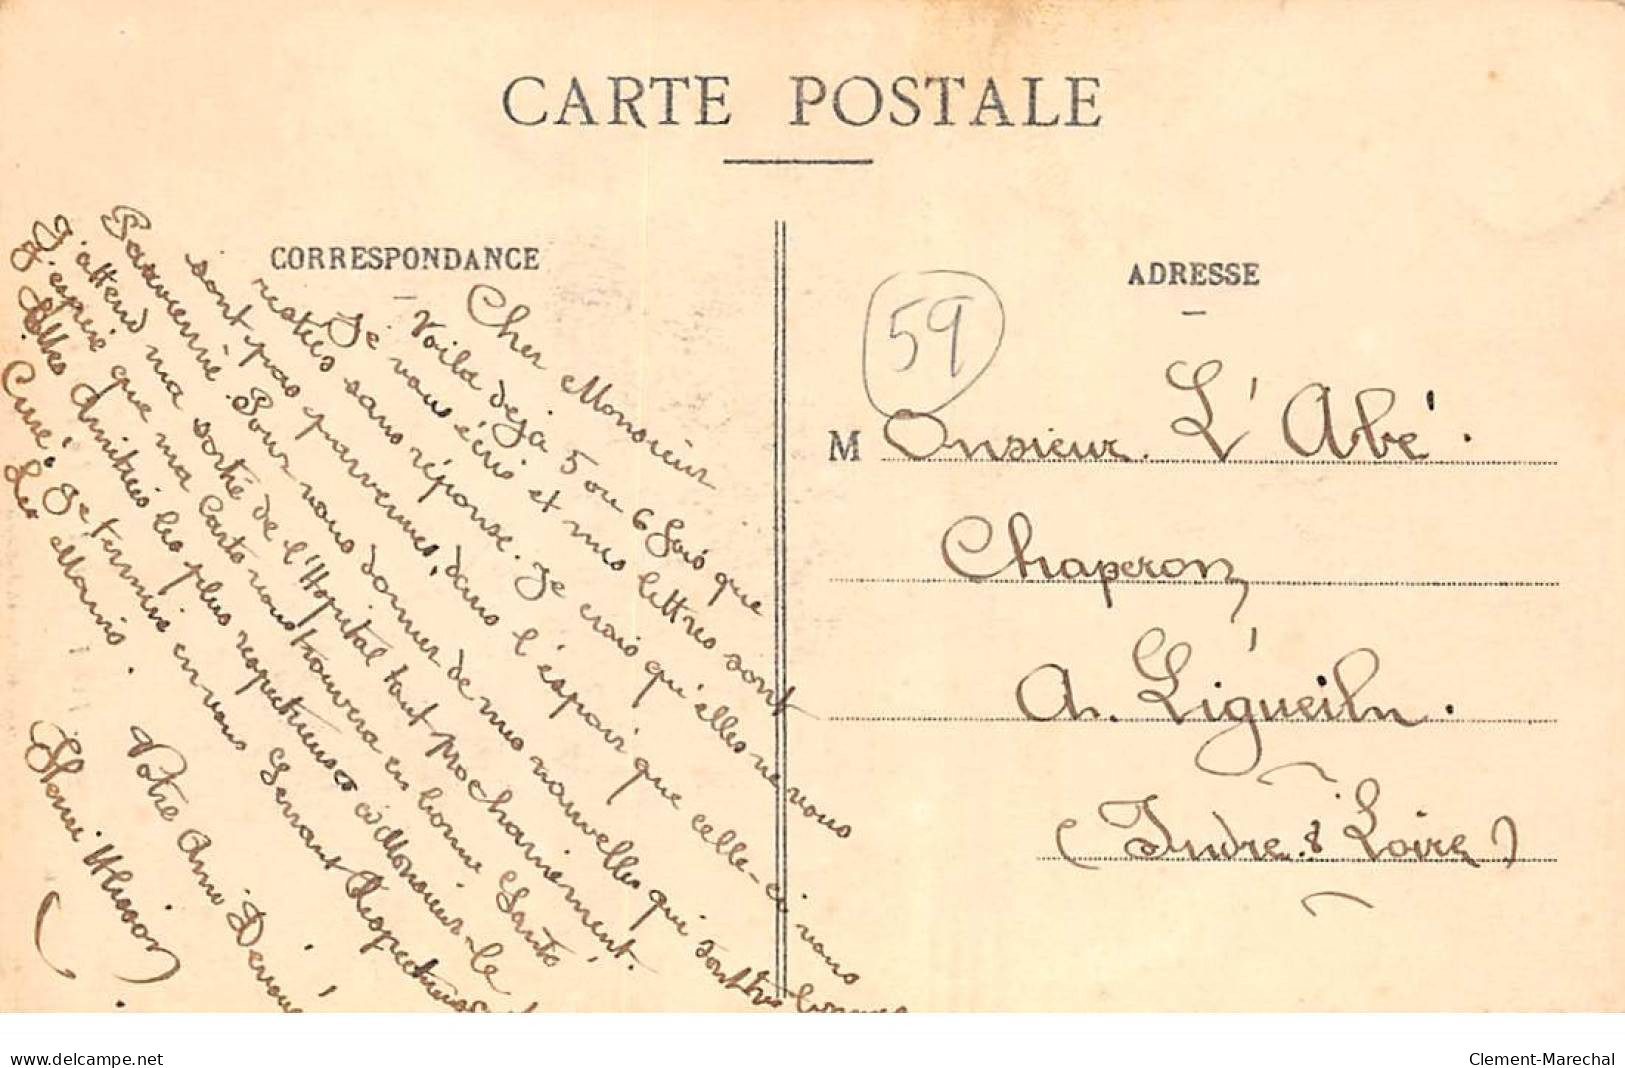 CARTE POSTALE
CORRESPONDANCE
Cher Monsieur
Voila deja 5 ou 6 fois que
Je vous écris et mes lettres sont
restées sans réponse. Je crois qu'elles ne vous
sont pas parvenues, dans l'éspoir que celle-ci vous
Parvienne. Pour vous donner de mes nouvelles qui sont très bonnes
J'attend ma sortie de l'Hopital tout prochainement.
J'espère que ma Carte vous trouvera en bonne Santé
Mes Amitiés les plus respectueuses à Monsieur le
Curé. Je termine en vous Serrant Respectueus
Les Mains.
Votre Ami Dévoué
Henri
ADRESSE
59
Monsieur L'Abé.
Chaperon
A. Ligueiln.
(Indre & Loire)
www.delcampe.net
Clement-Marechal